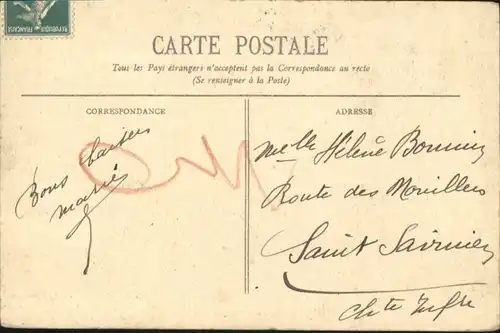 RÉPUBLIQUE FRANÇAISE
CARTE POSTALE
Tous les Pays étrangers n'acceptent pas la Correspondance au recto
(Se renseigner à la Poste)
CORRESPONDANCE
ADRESSE
Bons baisers
Marie
Melle Hélène Bonnin
Route des
Saint Savinien
Chte Infre